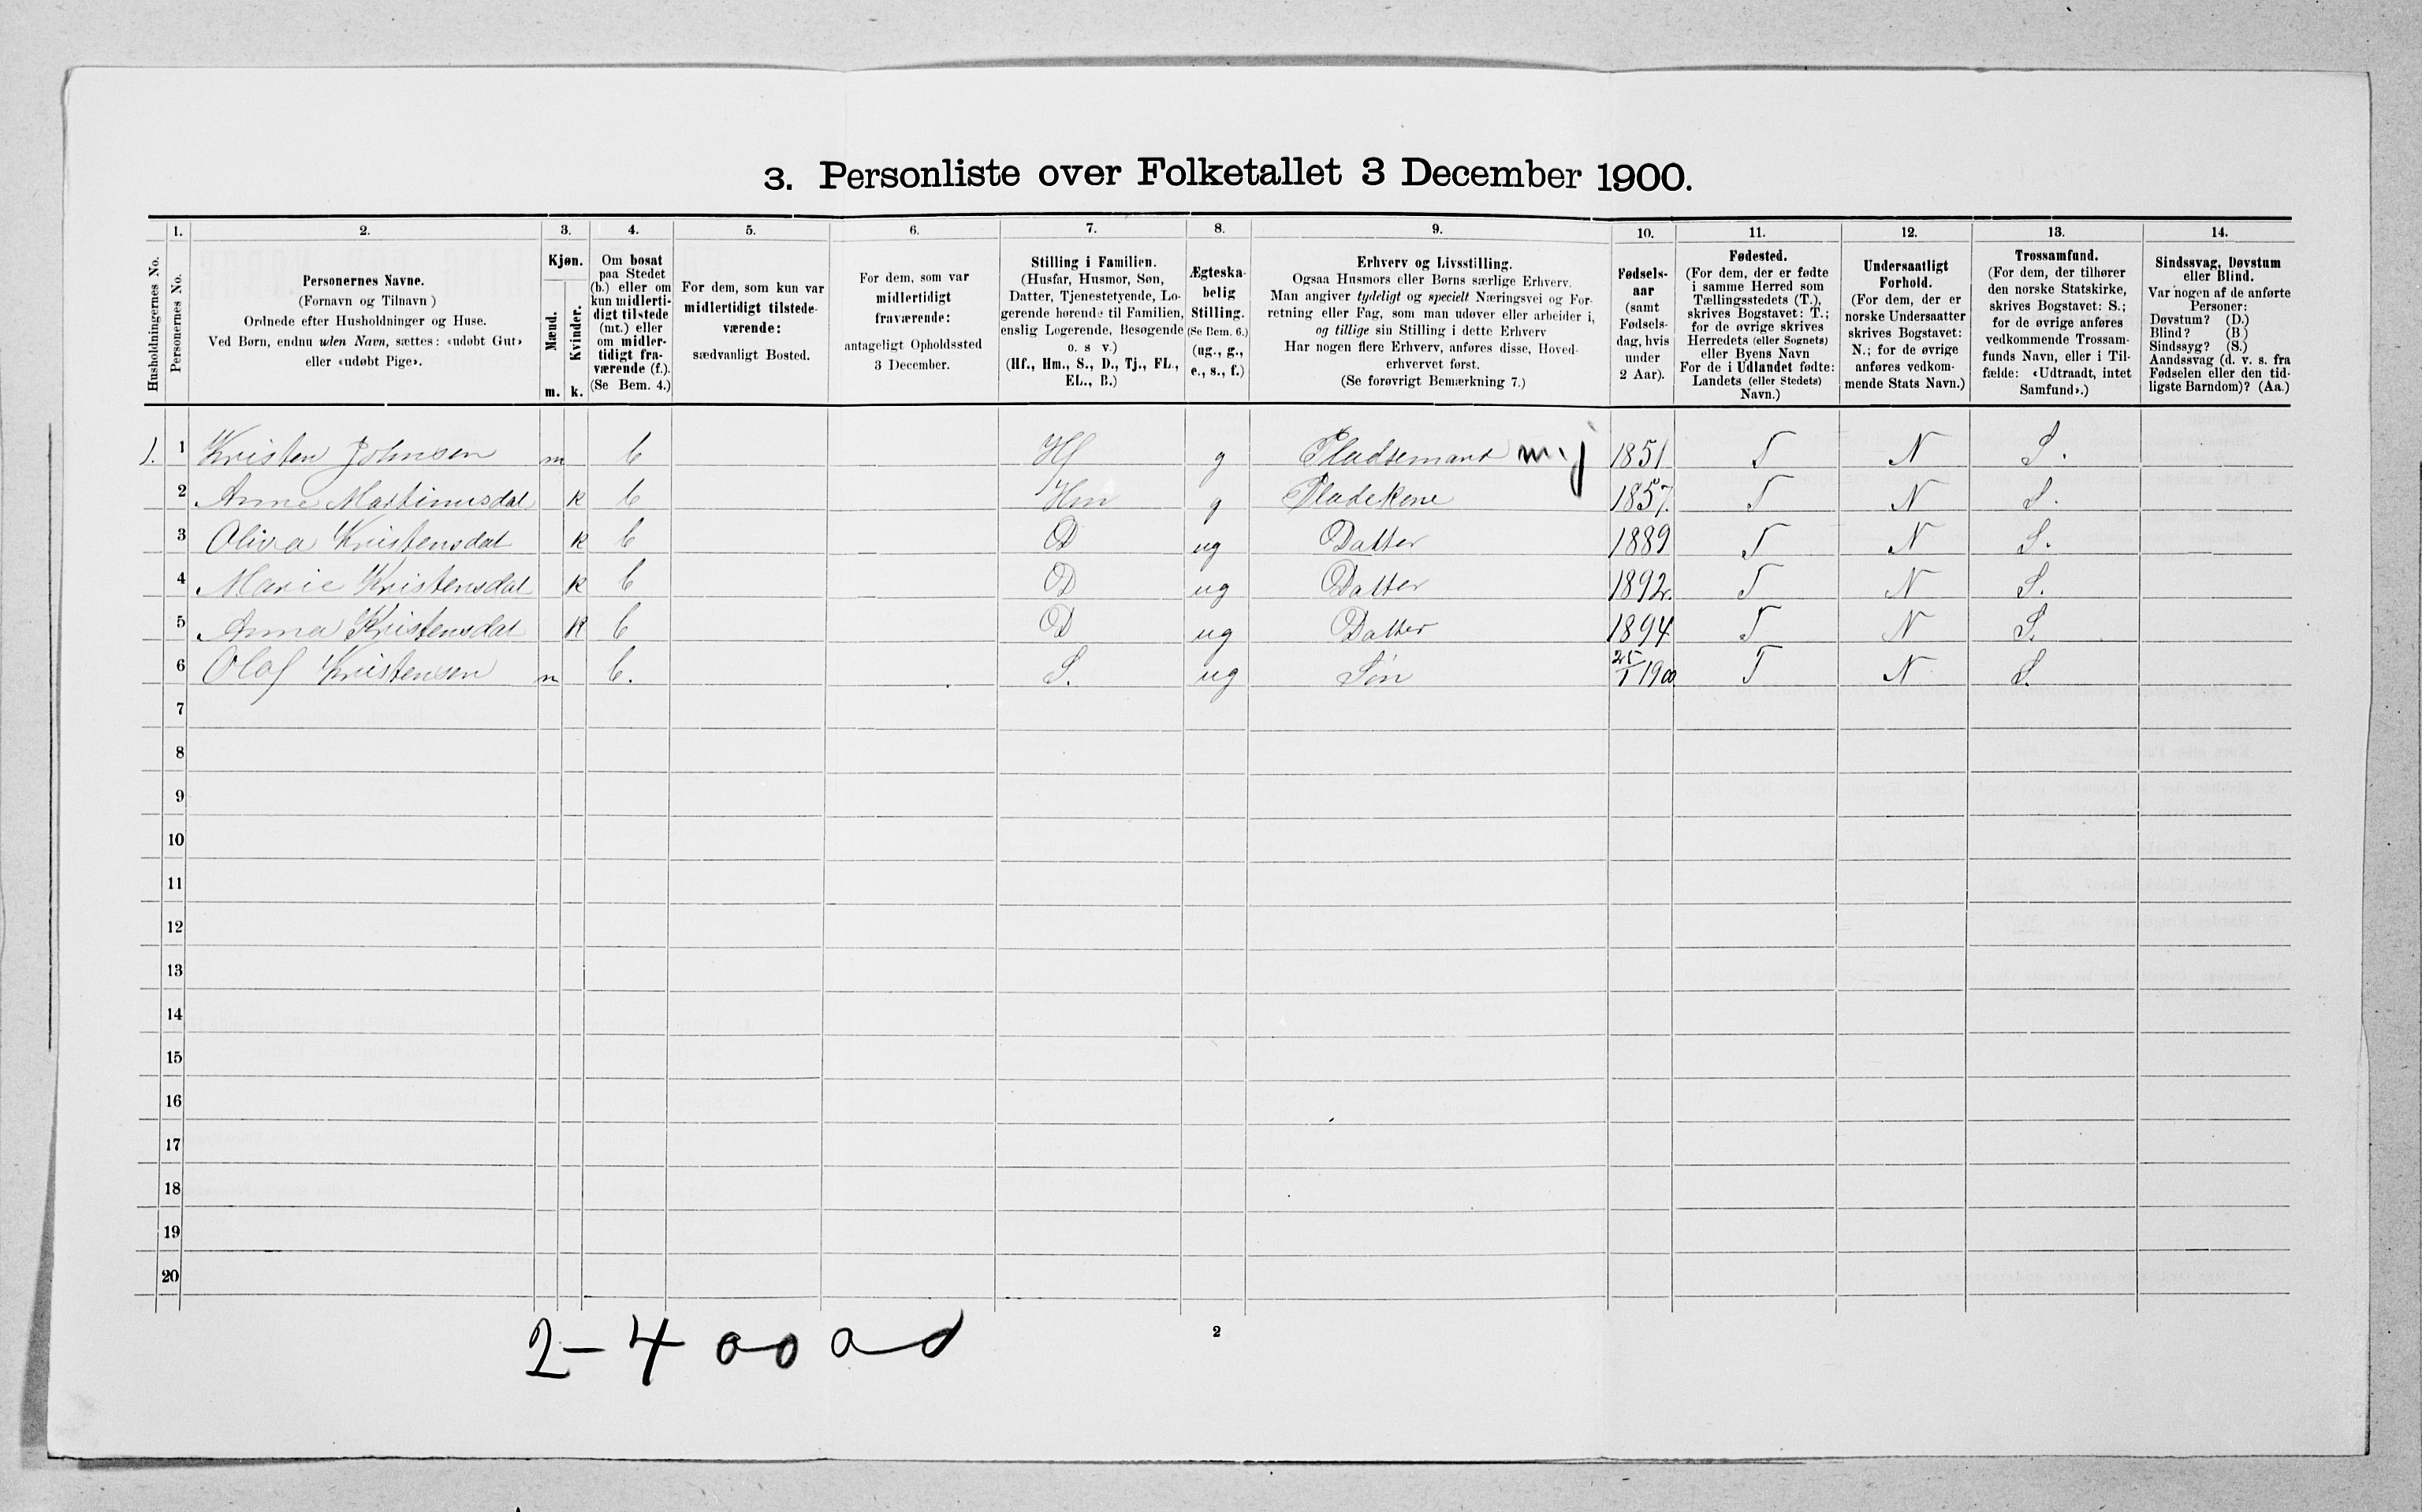 3. Personliste over Folketallet 3 December 1900.
Husholdningernes No.
1.
Personernes No.
2.
Personernes Navne.
(Fornavn og Tilnavn )
Ordnede efter Husholdninger og Huse.
Ved Børn, endnu uden Navn, sættes: «udøbt Gut»
eller «udøbt Pige».
3.
Kjøn.
Mænd.
Kvinder.
m. k.
4.
Om bosat
paa Stedet
(b.) eller om
kun midlerti-
digt tilstede
(mt.) eller
om midler-
tidigt fra-
værende (f.).
(Se Bem. 4.)
5.
For dem, som kun var
midlertidigt tilstede-
værende:
sædvanligt Bosted.
6.
For dem, som var
midlertidigt
fraværende:
antageligt Opholdssted
3 December.
7.
Stilling i Familien.
(Husfar, Husmor, Søn,
Datter, Tjenestetyende, Lo-
gerende hørende til Familien,
enslig Logerende, Besøgende
o. s v.)
(Hf., Hm., S., D., Tj., FL.,
EL., B.)
8.
Ægteska-
belig
Stilling.
(Se Bem. 6.)
(ug., g.,
e., s., f.)
9.
Erhverv og Livsstilling.
Ogsaa Husmors eller Børns særlige Erhverv.
Man angiver tydeligt og specielt Næringsvei og For-
retning eller Fag, som man udøver eller arbeider i,
og tillige sin Stilling i dette Erhverv
Har nogen flere Erhverv, anføres disse, Hoved-
erhvervet først.
(Se forøvrigt Bemærkning 7.)
10.
Fødsels-
aar
(samt
Fødsels-
dag, hvis
under
2 Aar).
11.
Fødested.
(For dem, der er fødte
i samme Herred som
Tællingsstedets (T.),
skrives Bogstavet: T.;
for de øvrige skrives
Herredets (eller Sognets)
eller Byens Navn
For de i Udlandet fødte:
Landets (eller Stedets)
Navn.)
12.
Undersaatligt
Forhold.
(For dem, der er
norske Undersaatter
skrives Bogstavet:
N.; for de øvrige
anføres vedkom-
mende Stats Navn.)
13.
Trossamfund.
(For dem, der tilhører
den norske Statskirke,
skrives Bogstavet: S.;
for de øvrige anføres
vedkommende Trossam-
funds Navn, eller i Til-
fælde: «Udtraadt, intet
Samfund».)
14.
Sindssvag, Døvstum
eller Blind.
Var nogen af de anførte
Personer:
Døvstum? (D.)
Blind? (B)
Sindssyg? (S.)
Aandssvag (d. v. s. fra
Fødselen eller den tid-
ligste Barndom)? (Aa.)
1. 1 Kristen Johnsen m b Hf g Pladsemand m.j 1851 T N S.
2 Anne Martinusdat k b Hm g Pladskone 1857. T N S.
3 Oliva Kristensdat k b D ug Datter 1889 T N S.
4 Marie Kristensdat k b D ug Datter 1892. T N S.
5 Anna Kristensdat k b D ug Datter 1894 T N S.
6 Olaf Kristensen m b. S. ug Søn 25/1 1900 T N S.
7
8
9
10
11
12
13
14
15
16
17
18
19
20
2-4
2